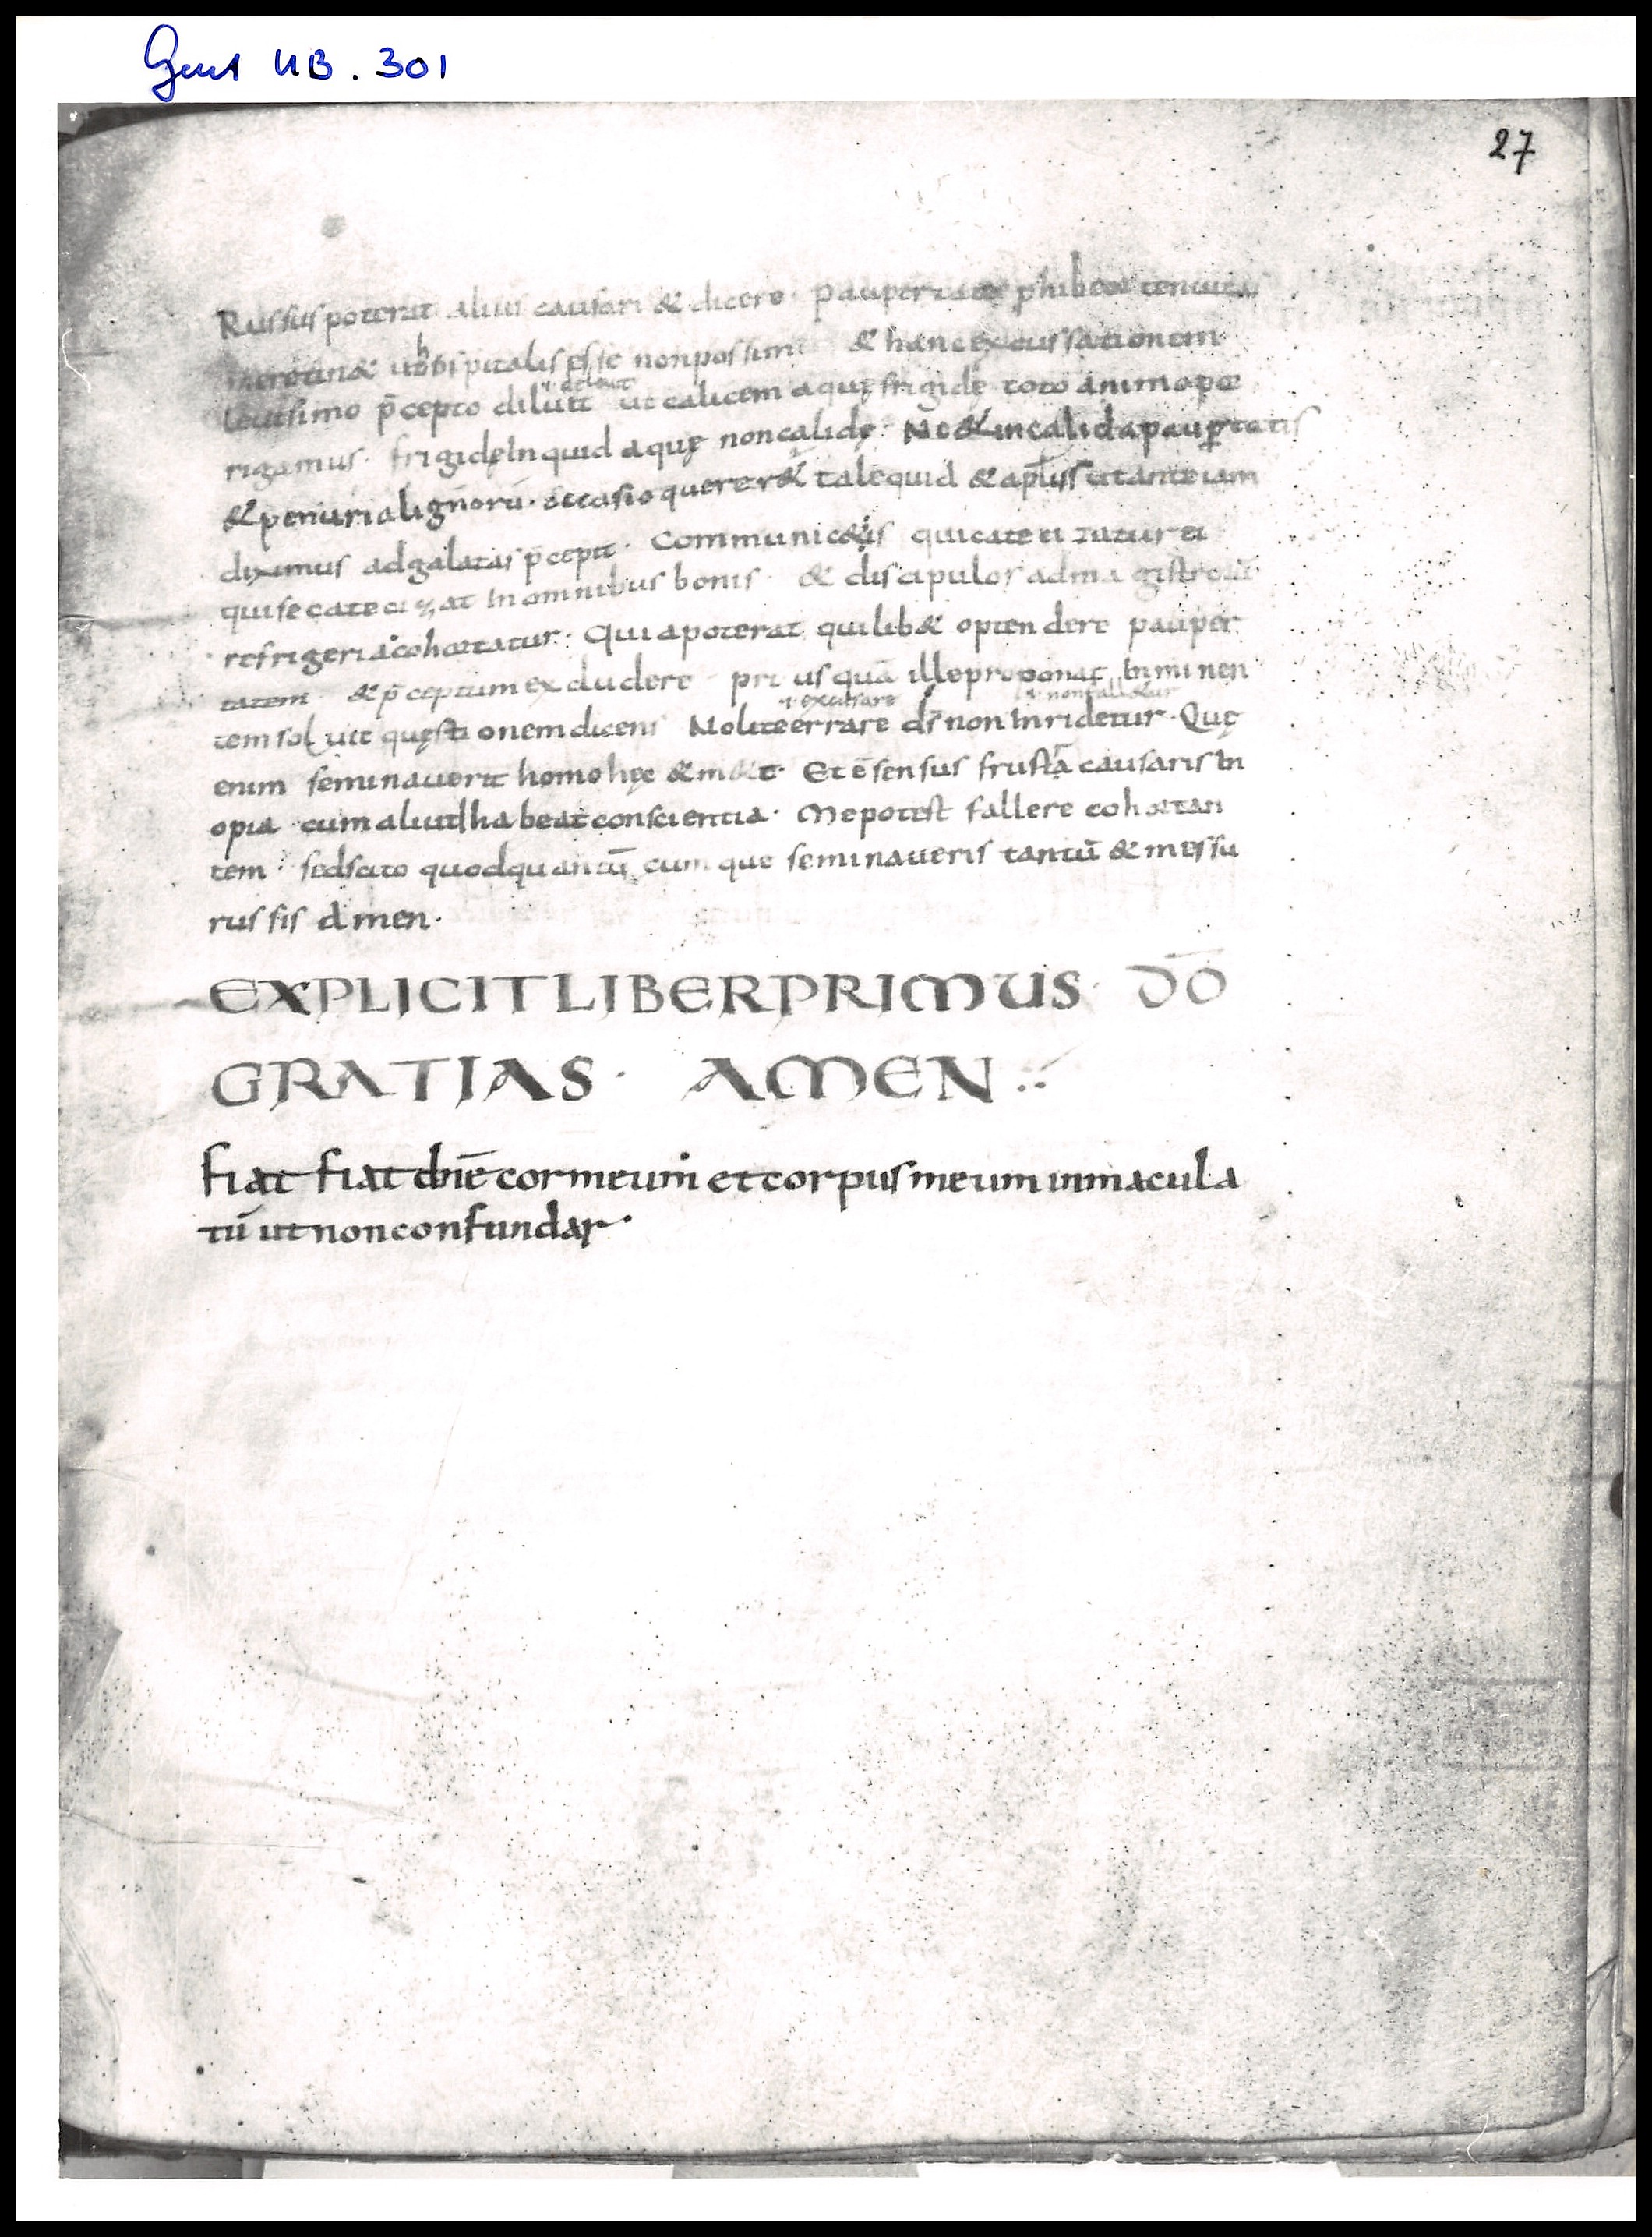 Gent UB. 301
27
Russus poterat alius causari & dicere · paupertate p̱hibeor tenuitas
me retin& ut hospitalis esse non possim & hanc excussationem
leuissimo p̄cepto diluit ut calicem aquę frigide toto animo por
ł deleuit
rigamus · frigidę Inquid aquę non calidę · Ne & in calida paup̱tatis
& penuria lignorū · occasio querer& tale quid & apl̄us ut ante iam
diximus ad galatas p̄cepit · Communic&is qui catecizatur ei
qui se catecizat In omnibus bonis · & discipulos ad magistrorū
refrigeria cohortatur · Quia poterat quilib& optendere pauper
tatem · & p̄ceptum excludere priusquā ille proponat Inminen
tem soluit quęstionem dicens Nolite errare ds̄ non Inridetur · Quę
ł excusare ł non fallitur
enim seminauerit homo hęc & m&et · Et ē sensus frustra causaris In
opia cum aliud habeat conscientia · Me potest fallere cohortan
tem · sed scito quod quantū cumque seminaueris tantū & messu
rus sis amen ·
EXPLICIT LIBER PRIMUS · DŌ
GRATIAS · AMEN
fiat fiat dn̄e cor meum et corpus meum inmacula
tū ut non confundar ·